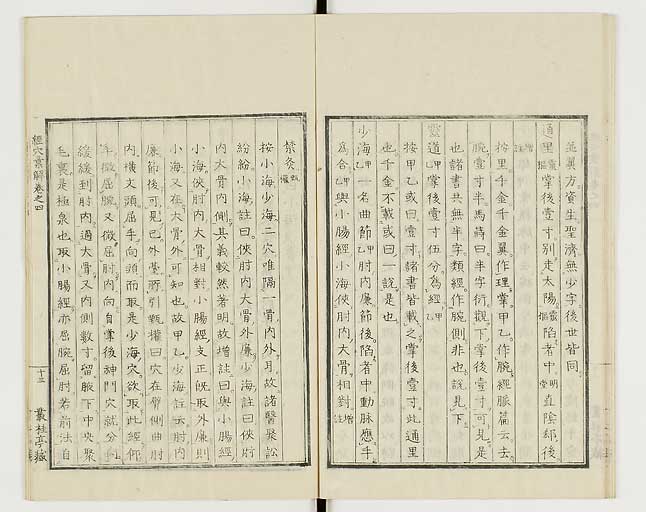 並翼方資生聖濟無少字後世皆同
通里甄權掌後壹寸別走太陽甄權陷者中明堂直陰郄後
按里千金千金翼作理掌甲乙作腕經脈篇云去
腕壹寸半馬蒔曰半字衍觀下掌後壹寸可見是
也諸書共無半字類經作腕側非也說見下
靈道甲乙掌後壹寸伍分為經甲乙
按甲乙或曰壹寸諸書皆載之掌後壹寸此通里
也千金不載或曰一說是也
少海甲乙一名曲節甲乙肘內廉節後陷者中動脈應手
為合甲乙與小腸經小海俠肘內大骨相對增註
禁灸甄權
按小海少海二穴唯隔一骨內外耳故諸醫聚訟
紛紛小海註曰俠肘內大骨外廉少海註曰俠肘
內大骨內側其義較然著明故增註曰與小腸經
小海俠肘內大骨相對小腸經支正既取外廉則
小海又在大骨外可知也故甲乙少海註云肘內
廉節後可見已外臺所引甄權曰穴在臂側曲肘
內橫文頭屈手向頭而取是少海穴欲取此經何
緩緩到肘內過大骨又內側數寸留腋下中央聚
毛裏是極泉也取小腸經亦屈腕屈肘若前法自
經穴彙解卷之四
十三
叢桂亭藏